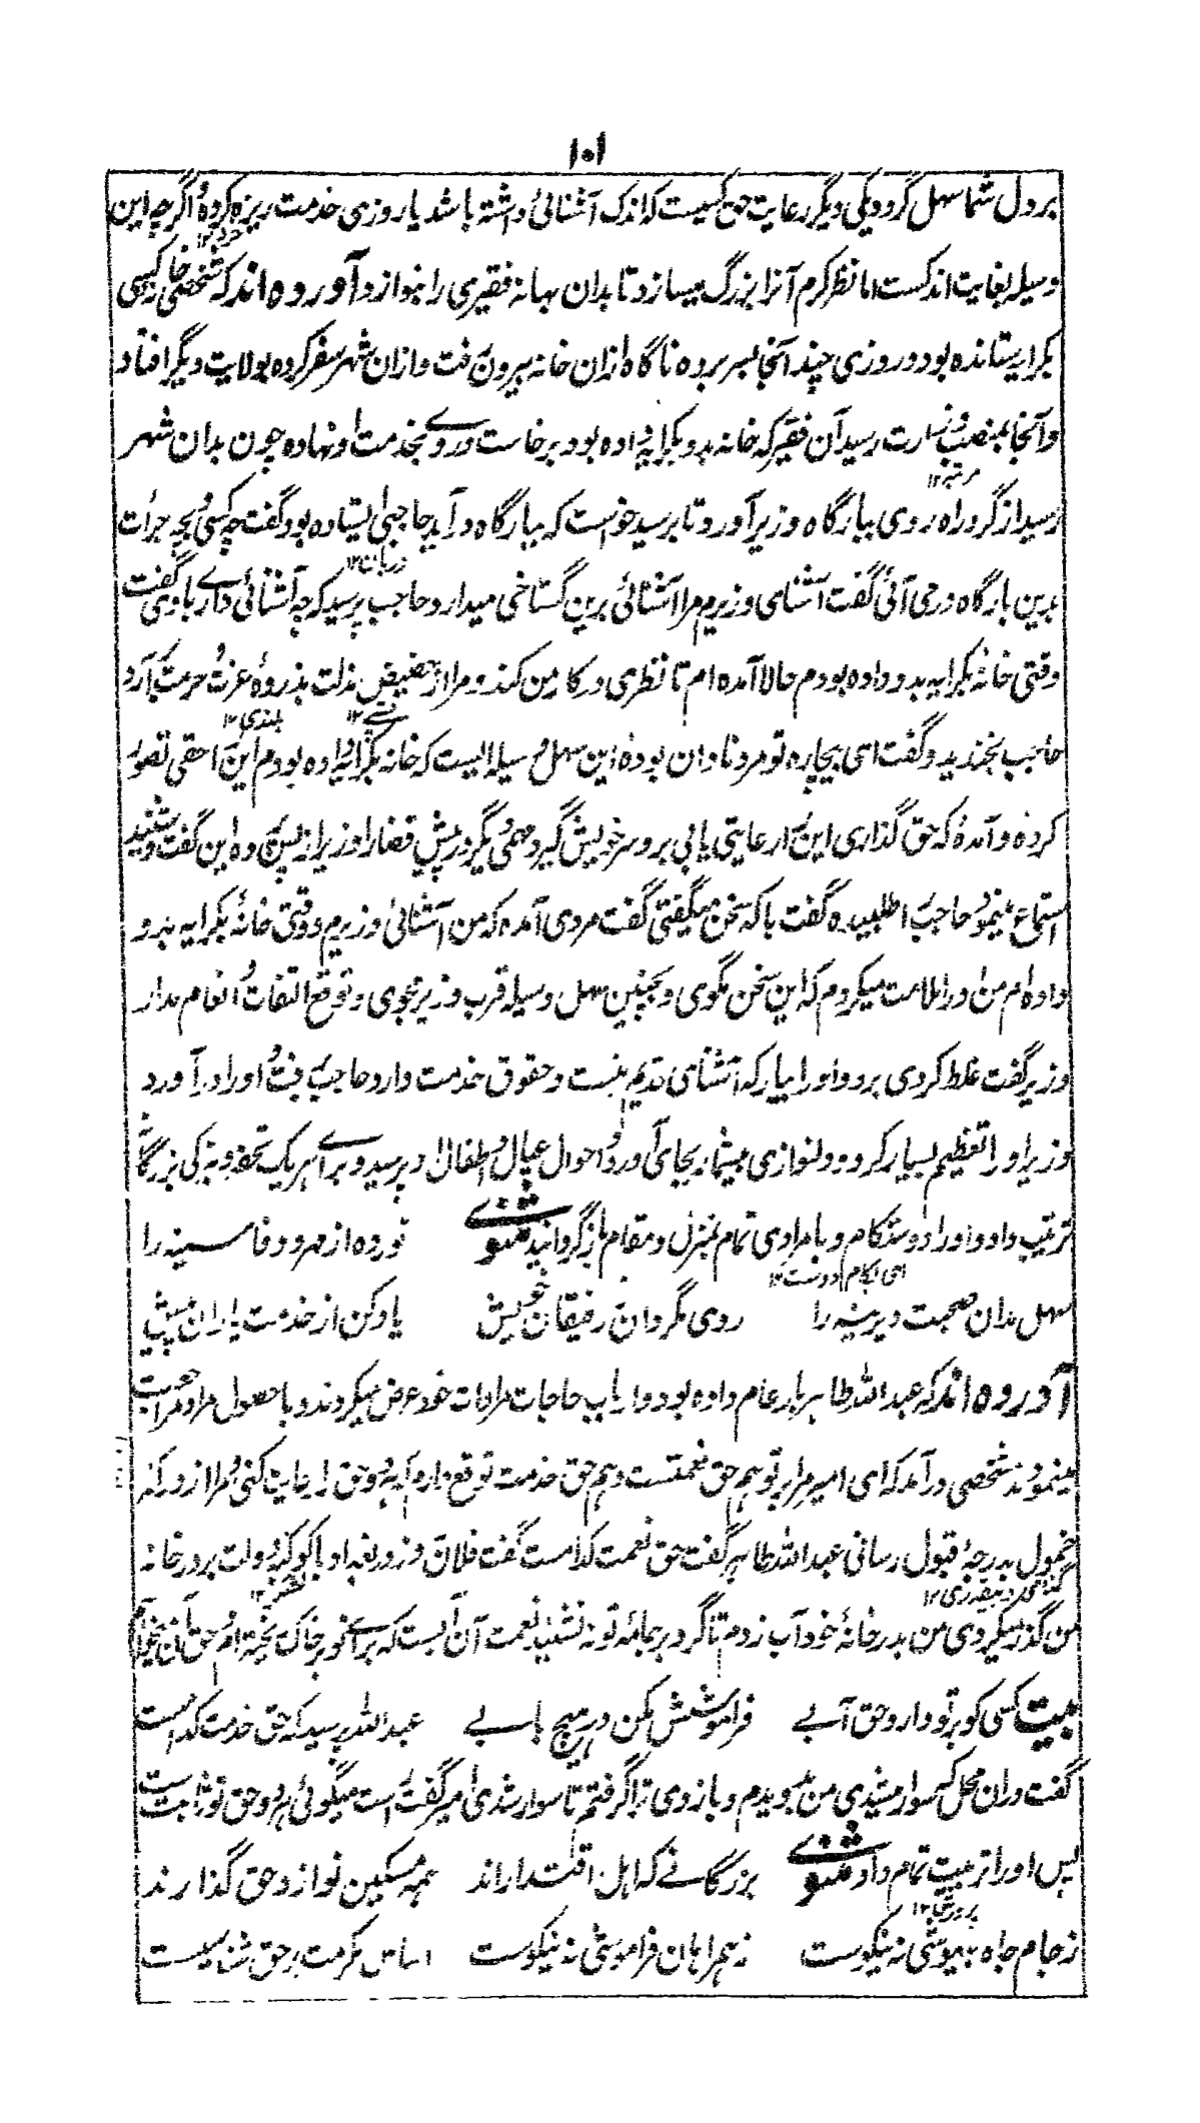 ۱۰۱
بر دل شما سهل گردد یکی دیگر رعایت حق کسیست که اندک آشنائی داشته باشد یا روزی خدمت ریزه کرده اگرچه این
خرد ۱۲
وسیله بغایت اندکست اما نظر کرم آنرا بزرگ میسازد تا بدان بهانه فقیری را بنوازد آورده اند که شخصی خانه کسی
بکرایه ستانده بود و روزی چند آنجا بسر برده ناگاه ازان خانه بیرون رفت و ازان شهر سفر کرده بولایت دیگر افتاد
و آنجا بمنصب وزارت رسید آن فقیر که خانه بدو بکرایه داده بود برخاست و روی بخدمت او نهاده چون بدان شهر
مرتبه ۱۲
رسید از گرد راه روی ببارگاه وزیر آورد تا برسید خواست که ببارگاه در آید حاجبی ایستاده بود گفت چه کسی و بچه جرأت
دربان ۱۲
بدین بارگاه در می آئی گفت آشنای وزیرم مرا آشنائی برین گستاخی میدارد حاجب پرسید که چه آشنائی داری با وی گفت
وقتی خانه بکرایه بدو داده بودم حالا آمده ام تا نظری در کار من کند و مرا از حضیض مذلت بذروه عزت و حرمت آرد
پستی ۱۲ بلندی ۱۲
حاجب بخندید و گفت ای بیچاره تو مرد نادان بوده این سهل وسیله ایست که خانه بکرایه داده بودم این احقی تصور
کرده و آمده که حق گذاری این را رعایتی یابی برو سر خویش گیر و مهمی دیگر در پیش قضا را وزیر از پس پرده این گفت و شنید
استماع مینمود حاجب را طلبیده گفت با که سخن میگفتی گفت مردی آمده که من آشنائی وزیرم و وقتی خانه بکرایه بدو
داده ام من او را ملامت میکردم که این سخن مگوی و بچنین سهل وسیله قرب وزیر مجوی و توقع التفات و انعام مدار
وزیر گفت غلط کردی برو و او را بیار که آشنای قدیم منست و حقوق خدمت دارد حاجب برفت و او را در آورد
وزیر او را تعظیم بسیار کرده و دلنوازی بیشمار بجای آورد و احوال عیال و اطفال او پرسید و برای هر یک تحفه و تبرکی بزرگانه
ترتیب داد و او را دوستکام و بامرادی تمام بمنزل و مقام باز گردانید مثنوی نور ده از مهر و وفا سینه را
ای بکام دوست ۱۲
سهل مدان صحبت دیرینه را روی مگردان ز رفیقان خویش یاد کن از خدمت یاران پیش
آورده اند که عبدالله طاهر بار عام داده بود و ارباب حاجات مرادات خود عرض میکردند و با حصول مراد مراجعت
مینمودند شخصی در آمد که ای امیر مرا بر تو هم حق نعمتست و هم حق خدمت توقع دارم که هر دو حق را رعایت کنی و مرا از درکه
خمول بدرجه قبول رسانی عبدالله طاهر گفت حق نعمت کدامست گفت فلان روز در بغداد با کوکبه دولت بر در خانه
گمنامی و بیقدری ۱۲ لشکر ۱۲
من گذر میکردی من بدر خانه خود آب زدم تا گرد بر جامه تو نه نشیند نعمت آن آبست که برای تو بر خاک ریخته ام
بیت کسی کو بر تو دارد حق آبی فراموشش مکن در هیچ بابی عبدالله پرسید که حق خدمت کدامست
گفت دران محل که سوار میشدی من بدویدم و بازوی ترا گرفتم تا سوار شدی امیر گفت راست میگوئی هر دو حق تو ثابت ست
پس او را تربیت تمام داد مثنوی بزرگانی که اهل اقتدار اند همه مسکین نواز و حق گذارند
پرورش ۱۲
ز جام جاه بیهوشی نه نیکوست ز همراهان فراموشی نه نیکوست اساس مکرمت بر حق شناسیست